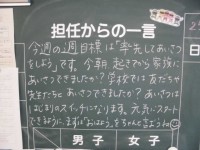 担任からの一言
今週の週目標は「率先してあいさつ
をしよう」です。今朝起きてから家族に
あいさつできましたか?学校では友だちや
先生たちにあいさつできましたか?あいさつは
はじまりのスイッチになります。元気にスタート
できるように、まずは「おはよう」をちゃんと言おうね
男子 女子
日